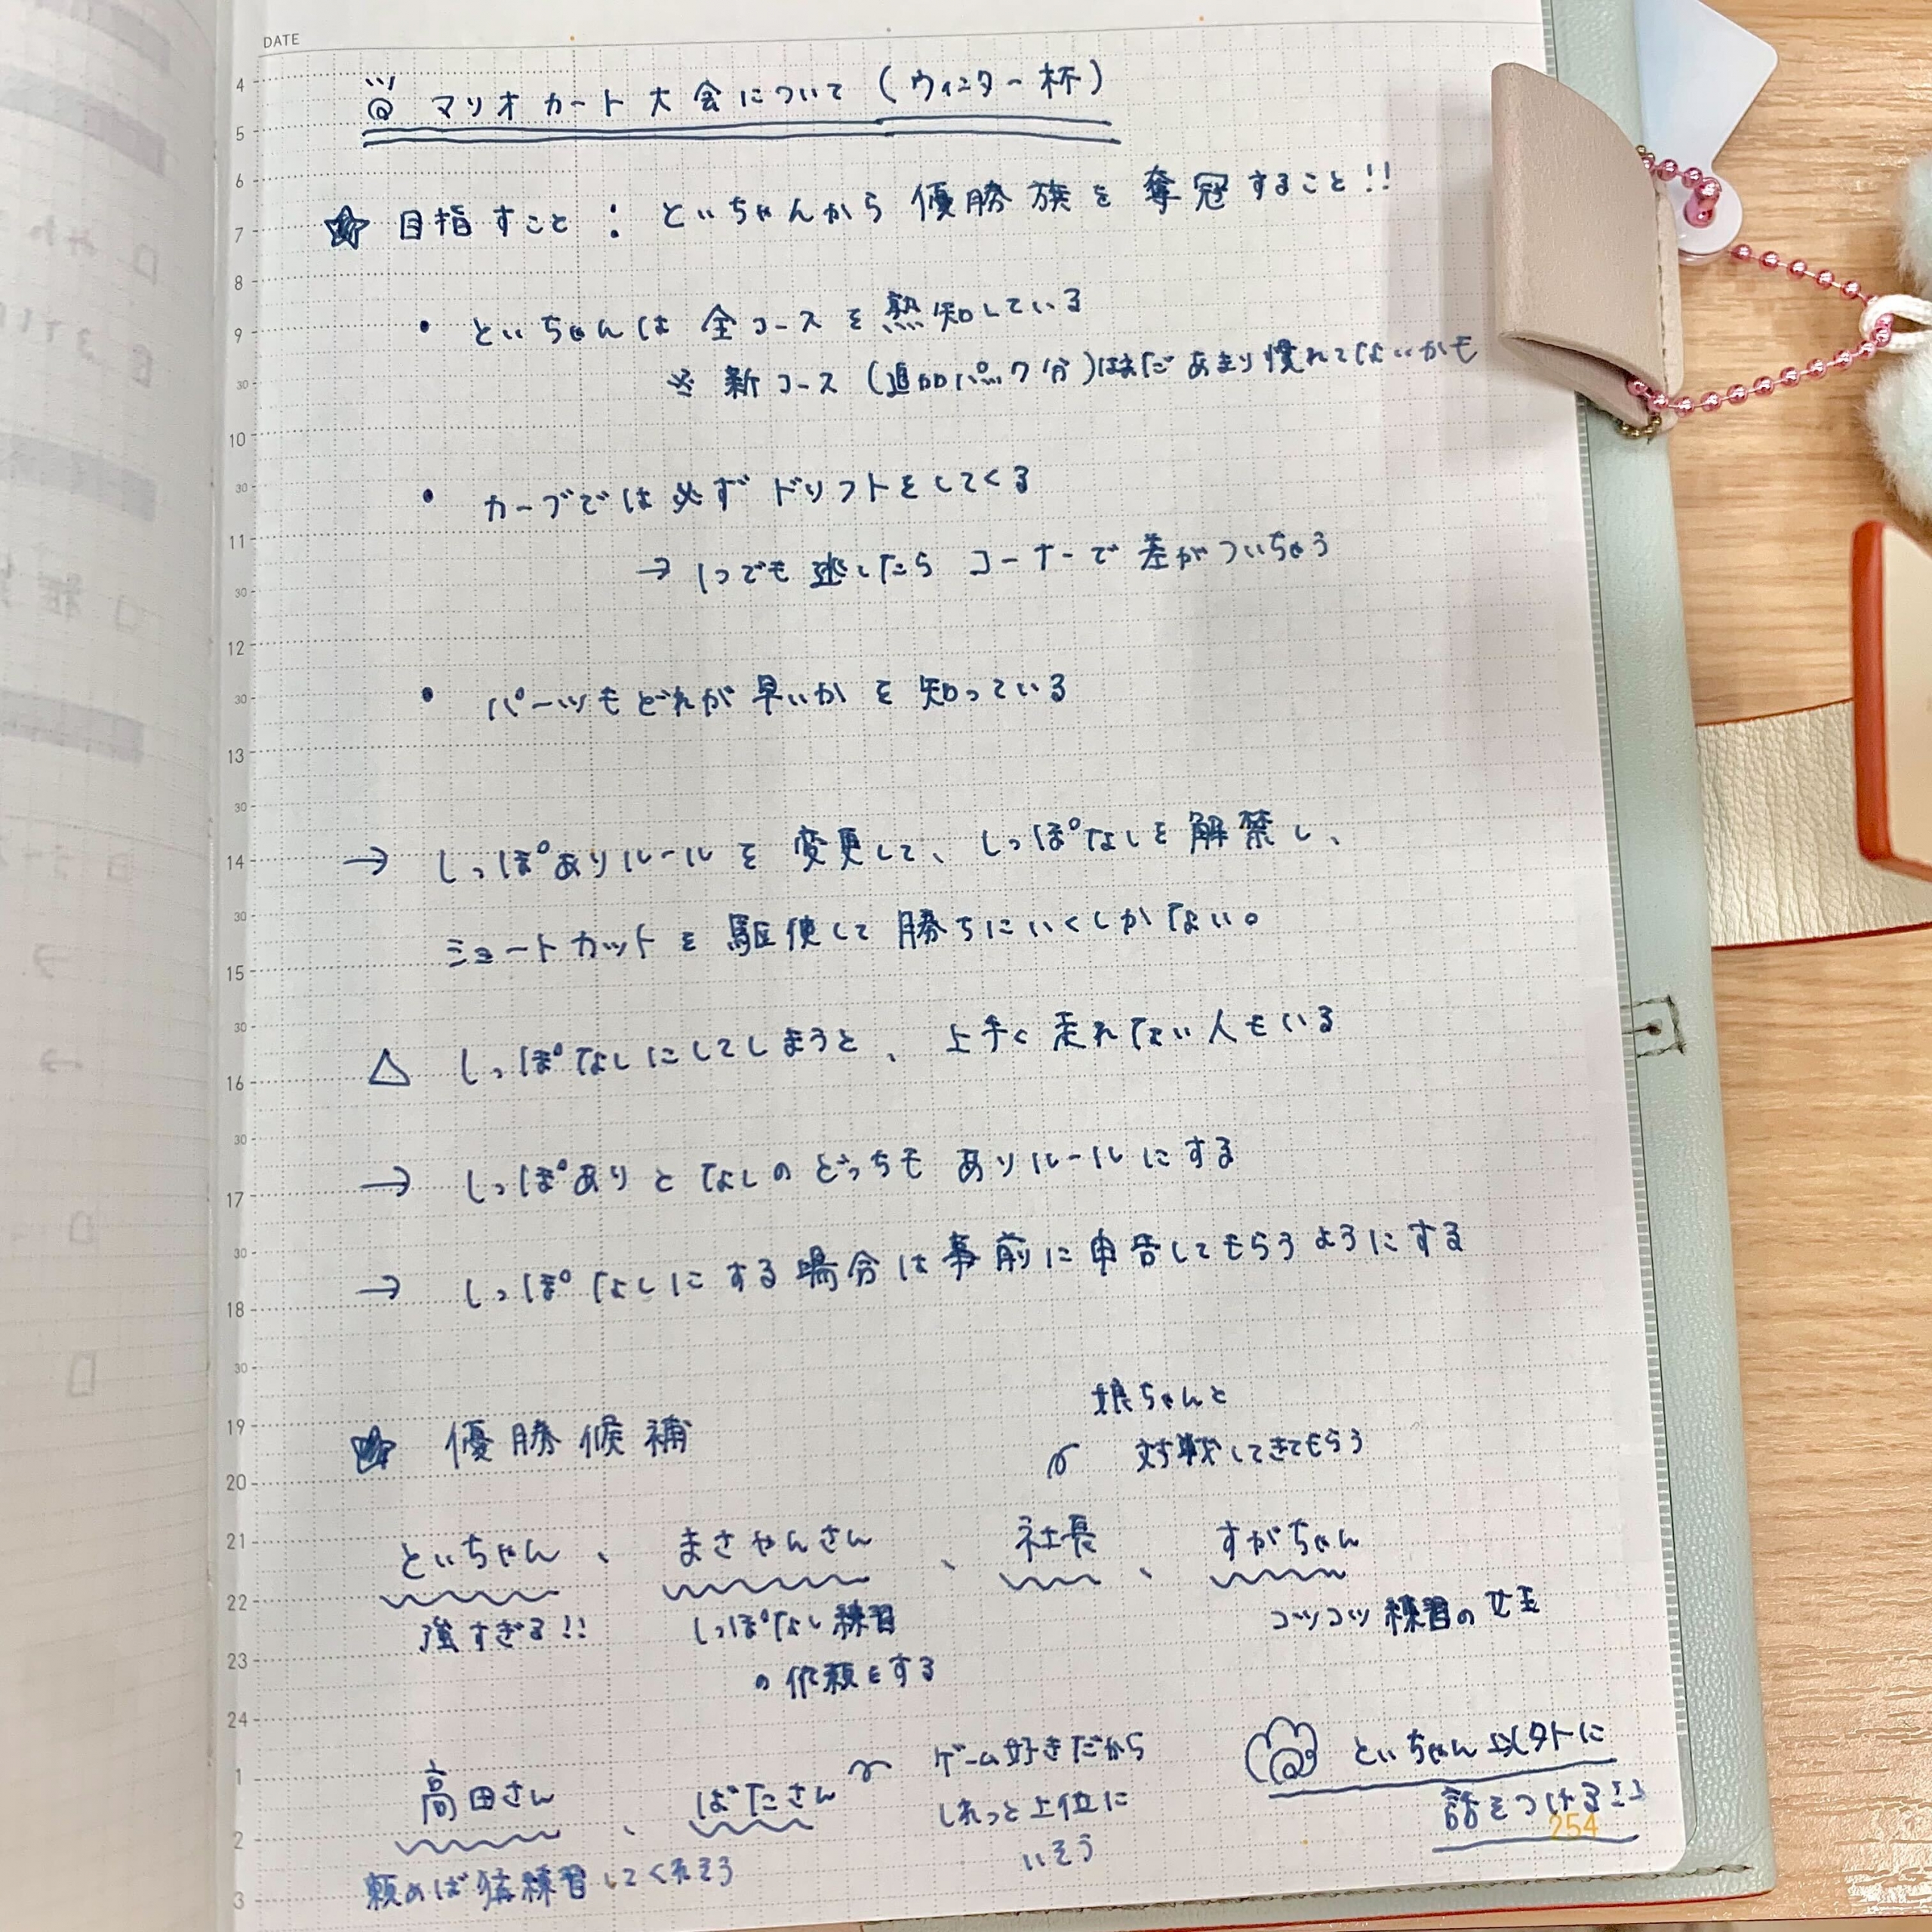 DATE
マリオカート大会について(ウィンター杯)
目指すこと:といちゃんから優勝旗を奪冠すること!!
・といちゃんは全コースを熟知している
※新コース(追加パック分)はまだあまり慣れてないかも
・カーブでは必ずドリフトをしてくる
→1つでも逃したらコーナーで差がついちゃう
・パーツもどれが早いかを知っている
→しっぽありルールを変更して、しっぽなしを解禁し、
ショートカットを駆使して勝ちにいくしかない。
△しっぽなしにしてしまうと、上手く走れない人もいる
→しっぽありとなしのどっちもありルールにする
→しっぽなしにする場合は事前に申告してもらうようにする
☆優勝候補
娘ちゃんと
対戦してきてもらう
といちゃん、まさやんさん、社長、すがちゃん
強すぎる!!
しっぽなし練習
の依頼をする
コツコツ練習の女王
高田さん、ばたさん
頼めば練習してくれそう
ゲーム好きだから
しれっと上位に
いそう
といちゃん以外に
話をつける!!
254
4
5
6
7
8
9
30
10
30
11
30
12
30
13
30
14
30
15
30
16
30
17
30
18
30
19
20
21
22
23
24
1
2
3